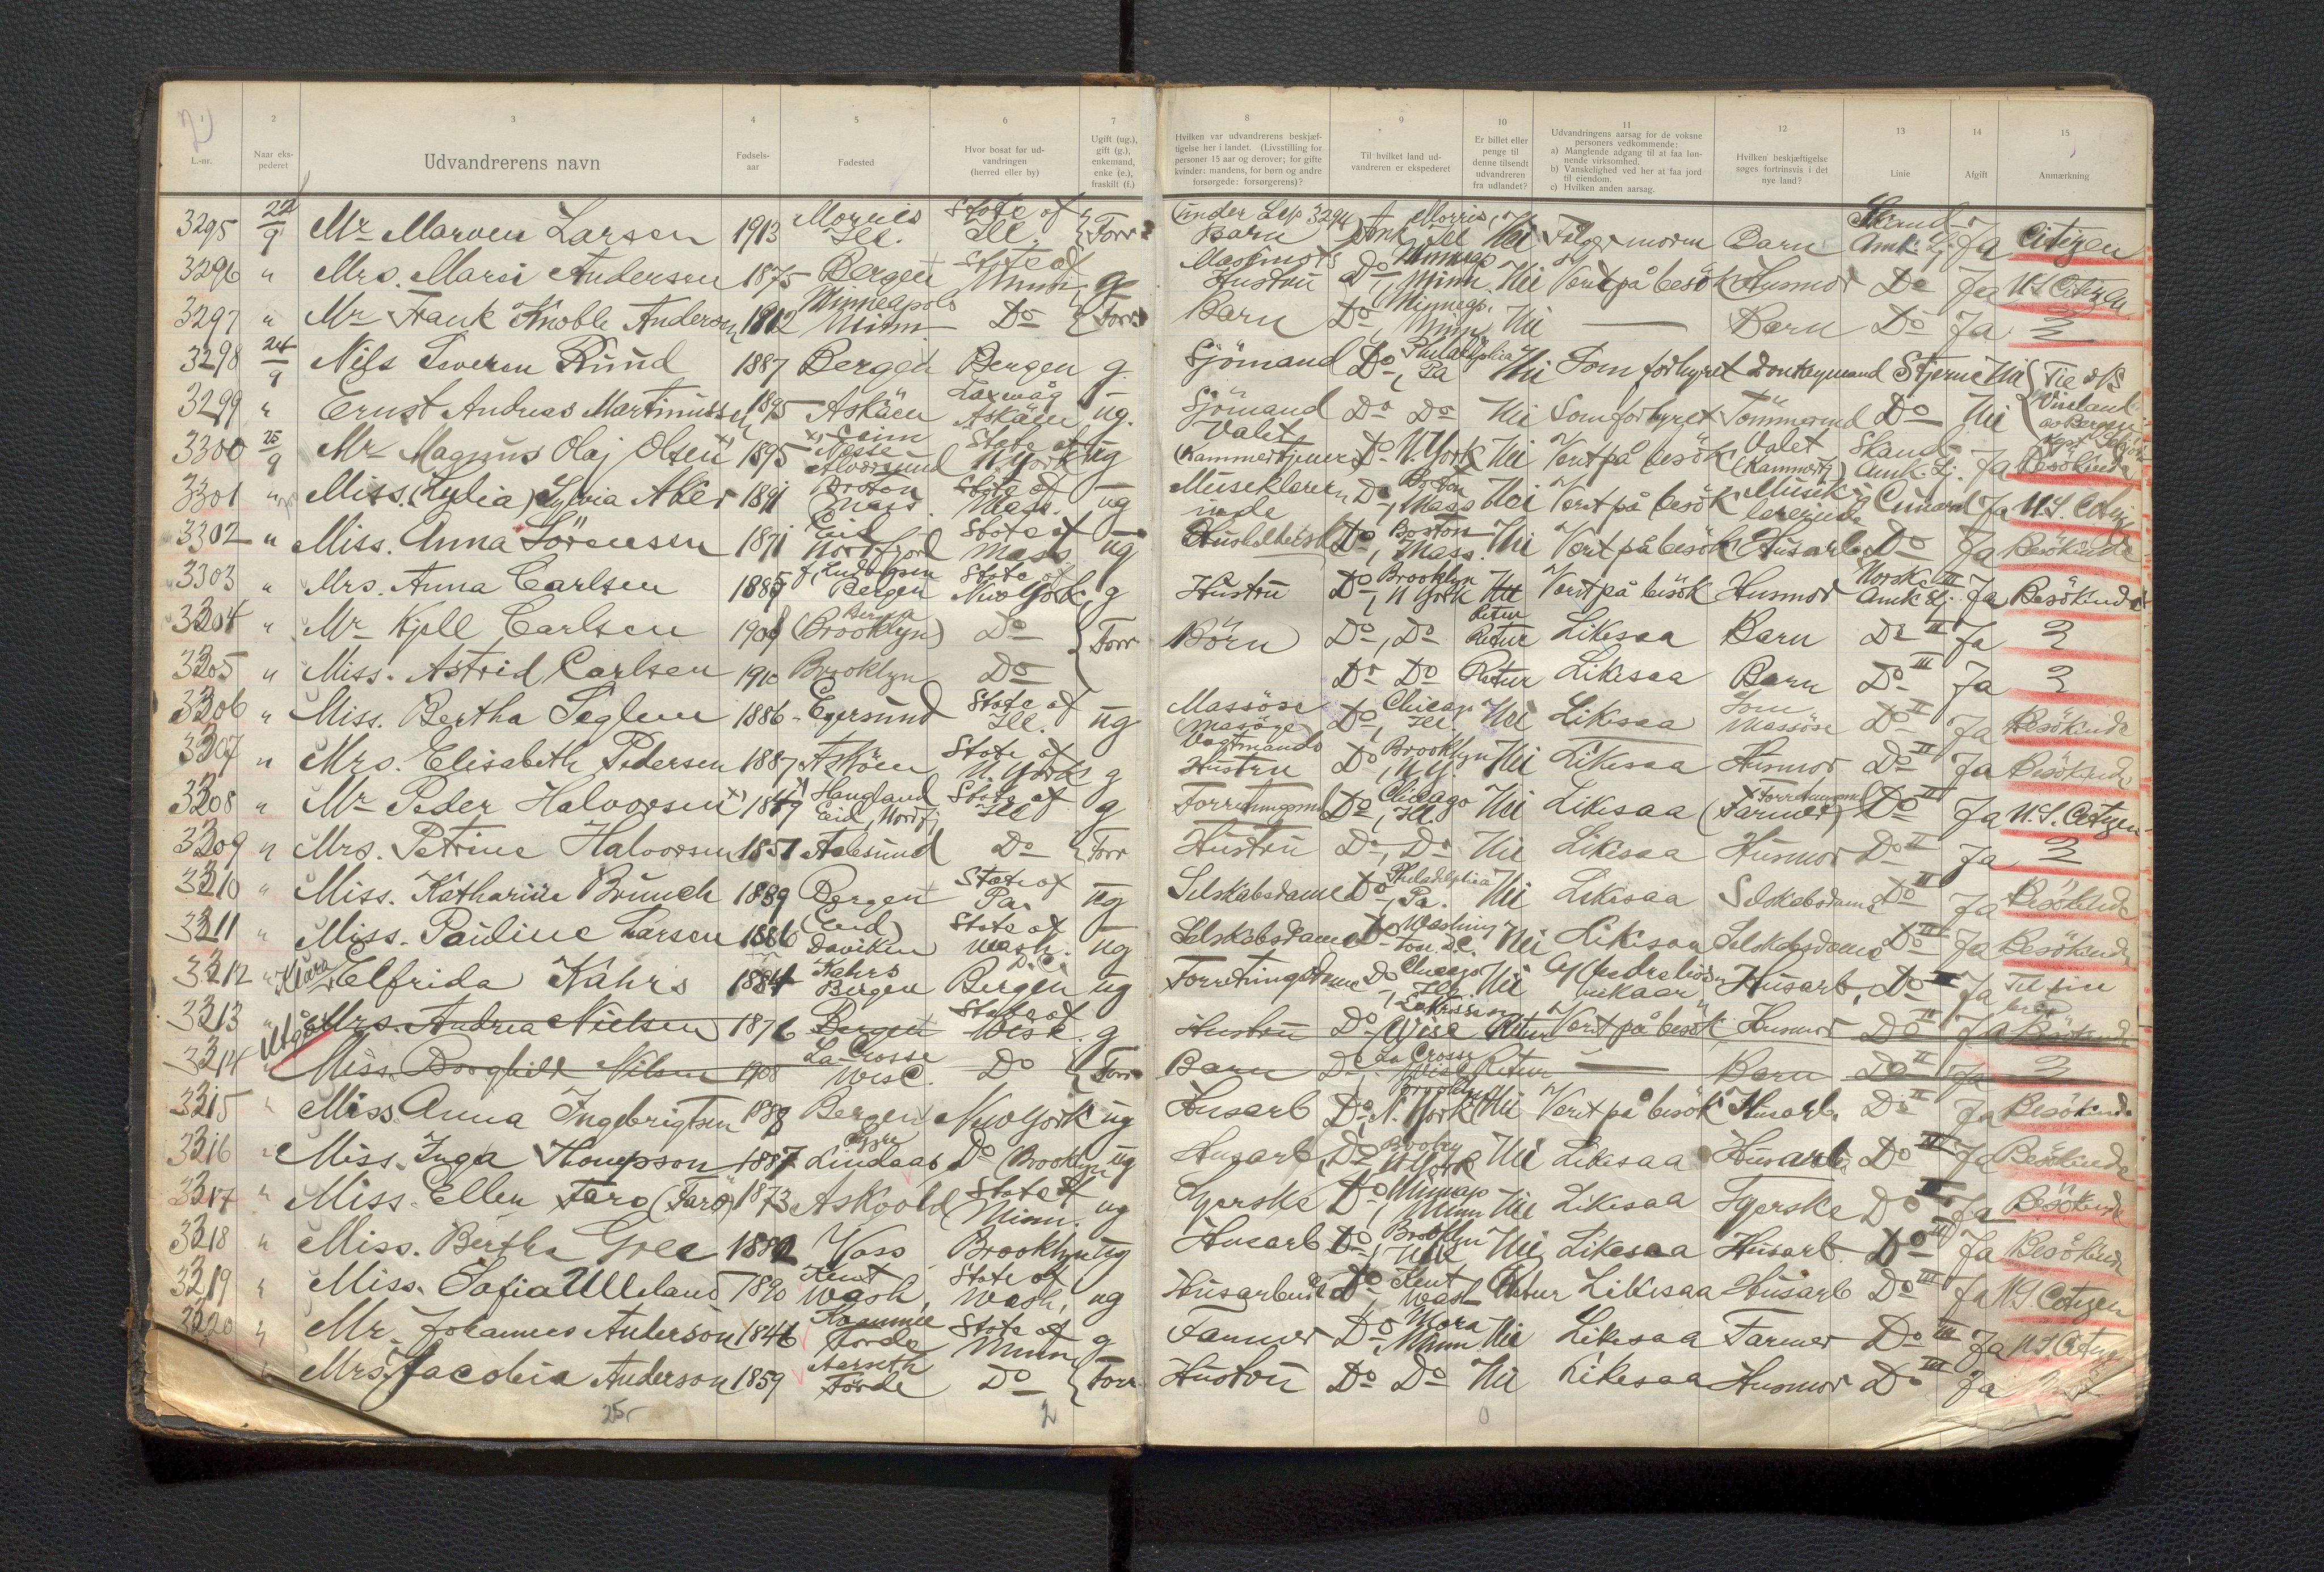 1 2 3 4 5 6 7
L.-nr. Naar eks-pederet Udvandrerens navn Fødsels-aar Fødested Hvor bosat før ud-vandringen (herred eller by) Ugift (ug.), gift (g.), enkemand, enke (e.), fraskilt (f.)
8 9 10 11 12 13 14 15
Hvilken var udvandrerens beskjæf-tigelse her i landet. (Livsstilling for personer 15 aar og derover; for gifte kvinder: mandens, for børn og andre forsørgede: forsørgerens)? Til hvilket land ud-vandreren er ekspederet Er billet eller penge til denne tilsendt udvandreren fra udlandet? Udvandringens aarsag for de voksne personers vedkommende: a) Manglende adgang til at faa løn-nende virksomhed. b) Vanskelighed ved her at faa jord til eiendom. c) Hvilken anden aarsag. Hvilken beskjæftigelse søges fortrinsvis i det nye land? Linie Afgift Anmærkning
3295 22/9 Mr Marven Larsen 1913 Ill. State of Ill. Forr. Barn Amk Morris, Ill Nei Følger moren Barn Skand. Amk. Lj. Ja Citizen
3296 " Mrs. Marie Andersen 1875 Bergen State of Minn. g Hustru Do, Minneap Minn. Nei Verit på besök Husmor Do Ja U.S. Citizen
3297 " Mr Frank Knoble Anderson 1912 Minneapols Minn. Do Forr. Barn Do, Minneap. Minn Nei — Barn Do Ja
3298 24/9 Nils Iversen Rund 1887 Bergen Bergen g. Sjömand Do, Philadelphia Pa Nei Som forhyret Donkeymand Stjerne Nei Til d/s
3299 " Ernst Andreas Martinussen 1895 Asköen Laxevåg Asköen ug. Sjömand Do Do Nei Som forhyret Tömmermd Do Nei Vineland av Bergen
3300 25/9 Mr Magnus Olaj Olsen 1895 Alversund State of N. York ug Valet (Kammertjener Do N. York Nei Verit på besök Valet (Kammertj) Skand. Amk. Lj. Ja Besökende
3301 " Miss. (Lydia) Sylvia Aker 1891 Boston Mass. State of Mass. ug Museklærerinde Do, Boston Mass Nei Verit på besök Musiklærerinde Cunard Ja U.S. Citizen
3302 " Miss. Anna Sörensen 1871 Eid Nordfjord State of Mass. ug Do, Boston Mass. Nei Verit på besök Husarb. Do Ja Besökende
3303 " Mrs. Anna Carlsen 1885 f. Ludvigsen Bergen State of New York g Hustru Do, Brooklyn N York Nei Verit på besök Husmor Norske Amk Lj. III Ja Besökende
3304 " Mr Kjell Carlsen 1908 Bergen (Brooklyn) Do Forr Börn Do, Do Retur Retur Likesaa Barn Do III Ja
3305 " Miss. Astrid Carlsen 1910 Brooklyn Do Do Do Retur Likesaa Barn Do III Ja
3306 " Miss. Bertha Seglem 1886 Egersund State of Ill. ug Massöse Do, Chicago Ill. Nei Likesaa Som Massöse Do II Ja Besökende
3307 " Mrs. Elisabeth Pedersen 1887 Asköen State of N. York g Hustru Do Brooklyn N.Y. Nei Likesaa Husmor Do II Ja Besökende
3308 " Mr Peder Halvorsen 1849 Haugland Eid, Nordfj. State of Ill g Forretningsmd Do, Chicago Ill. Nei Likesaa Forretningsmd (Farmer) Do II Ja U.S. Citizen
3309 " Mrs. Petrine Halvorsen 1851 Aalesund Do Forr Hustru Do, Do Nei Likesaa Husmor Do II Ja
3310 " Miss. Katharina Brunch 1889 Bergen State of Pa. ug Selskabsdame Do, Philadelphia Pa. Nei Likesaa Selskabsdame Do II Ja Besökende
3311 " Miss. Pauline Larsen 1886 (Eid) Daviken State of Wash. D.C. ug Selskabsdame Do Washington D.C. Nei Likesaa Selskabsdame Do II Ja Besökende
3312 " Klara Elfrida Kahrs 1884 Kahrs Bergen Bergen ug Forretningsdame Do, Chicago Ill. Nei Husarb. Do Ja Til sin bror
3313 " Utgår Mrs. Andrea Nielsen 1876 Bergen State of Wisc. g Hustru Do, La Crosse Wisc Retur Verit på besök Husmor Do II Ja Besökende
3314 " Miss. Borghild Nilsen 1908 La Crosse Wisc. Do Forr Barn Do, La Crosse Wisc Retur — Barn Do II Ja
3315 " Miss Anna Ingebrigtsen 1888 Bergen New York ug Husarb Do, Brooklyn N. York Nei Verit på besök Husarb. Do II Ja Besökende
3316 " Miss. Inga Thompson 1887 Lindaas Do (Brooklyn ug Husarb. Do, N York Nei Likesaa Husarb. Do III Ja Besökende
3317 " Miss. Ellen Farö (Farö) 1873 Askvold State of Minn. ug Syerske Do, Minneap Minn Nei Likesaa Syerske Do Ja Besökende
3318 " Miss. Bertha Gree 1882 Voss Brooklyn ug Husarb Do, Brooklyn Nei Likesaa Husarb. Do III Ja Besökende
3319 " Miss. Sofia Ulleland 1890 Kent Wash, State of Wash, ug Husarbeide Do, Kent Wash Retur Likesaa Husarb Do III Ja U.S. Citizen
3320 " Mr. Johannes Anderson 1846 Förde State of Minn g Farmer Do, Mora Minn Nei Likesaa Farmer Do III Ja U.S. Citizen
" Mrs. Jacobia Anderson 1859 Aarseth Förde Do Forr Hustru Do Do Nei Likesaa Husmor Do III Ja
25 2 0